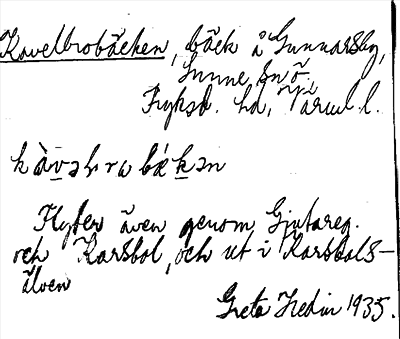 Kavelbrobäcken, bäck å Gunnarsby,
Sunne sn ö.
Fryksd. hd, Värml. l.
Flyter även genom Gjutareg.
och Karsbol, och ut i Karsbols-
älven
Greta Hedin 1935.